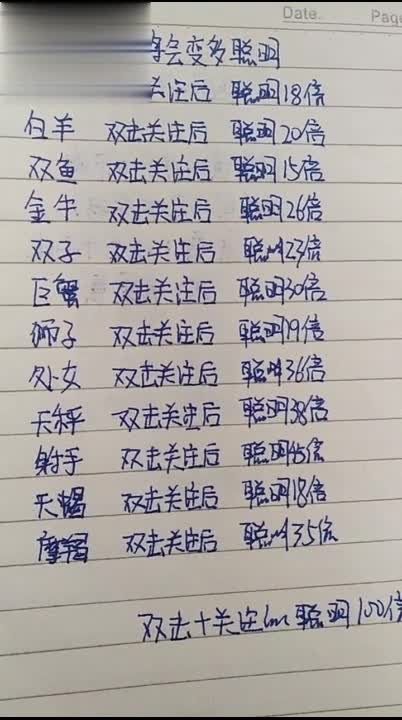 Date. Page
会变多聪明
关注后 聪明18倍
白羊 双击关注后 聪明20倍
双鱼 双击关注后 聪明15倍
金牛 双击关注后 聪明26倍
双子 双击关注后 聪明23倍
巨蟹 双击关注后 聪明30倍
狮子 双击关注后 聪明19倍
处女 双击关注后 聪明36倍
天秤 双击关注后 聪明38倍
射手 双击关注后 聪明45倍
天蝎 双击关注后 聪明18倍
摩羯 双击关注后 聪明35倍
双击十关注 聪明100倍